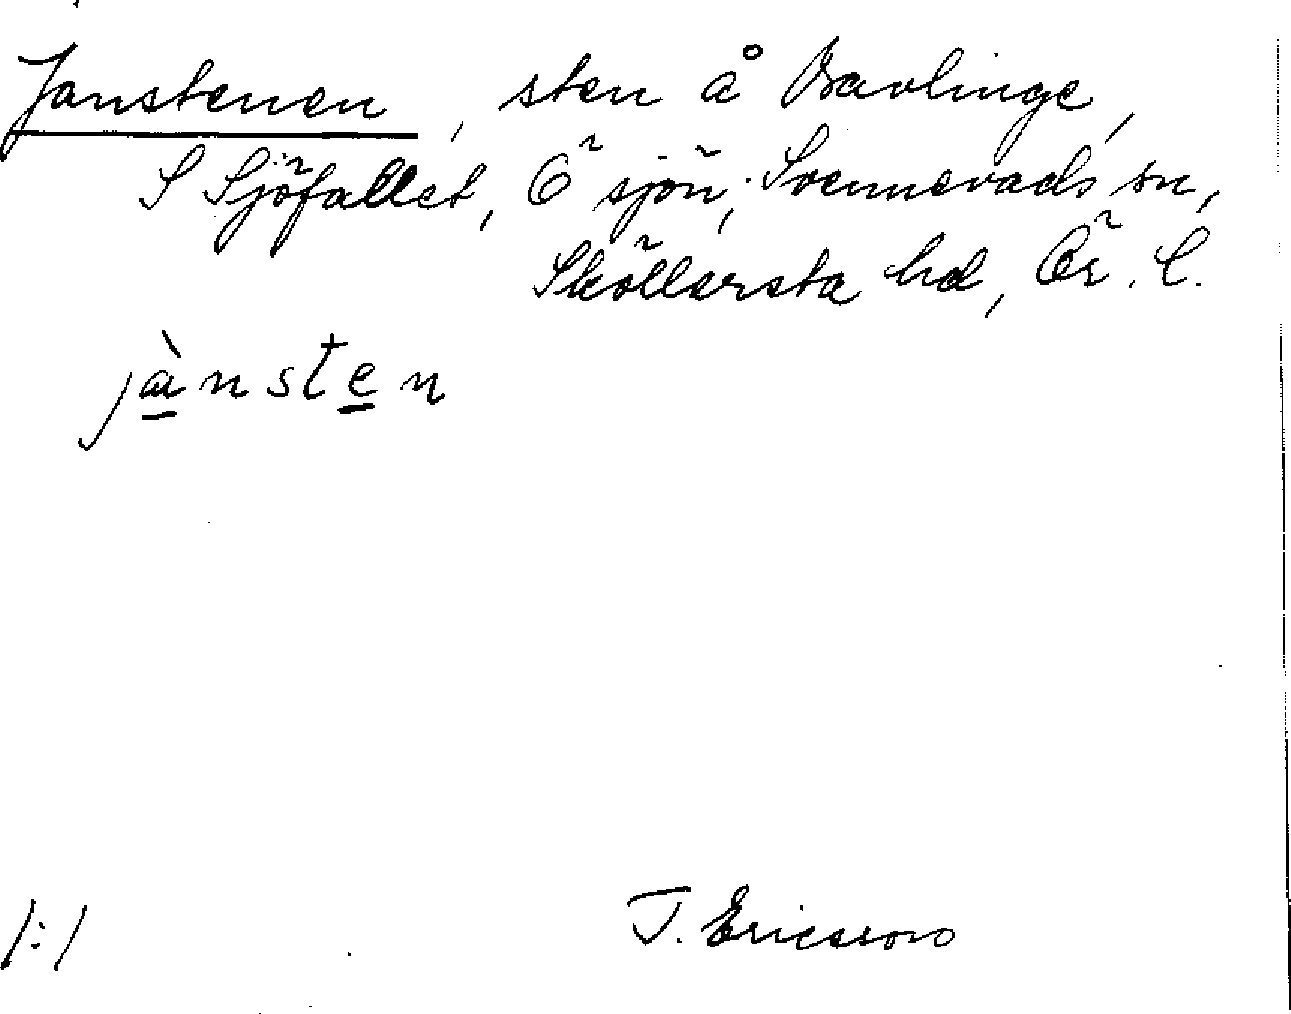 Janstenen, sten å Bavlinge,
S Sjöfallet, Ö sjön, Svennevads sn,
Sköllersta hd, Ör. l.
jànsten
1:1
T. Ericsson